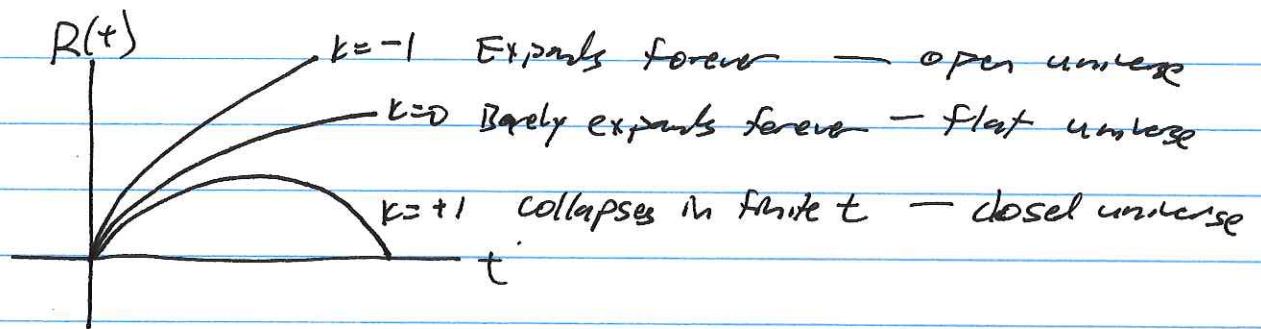 R(t)
k=-1 Expands forever — open universe
k=0 Barely expands forever - flat universe
k=+1 collapses in finite t — closed universe
t